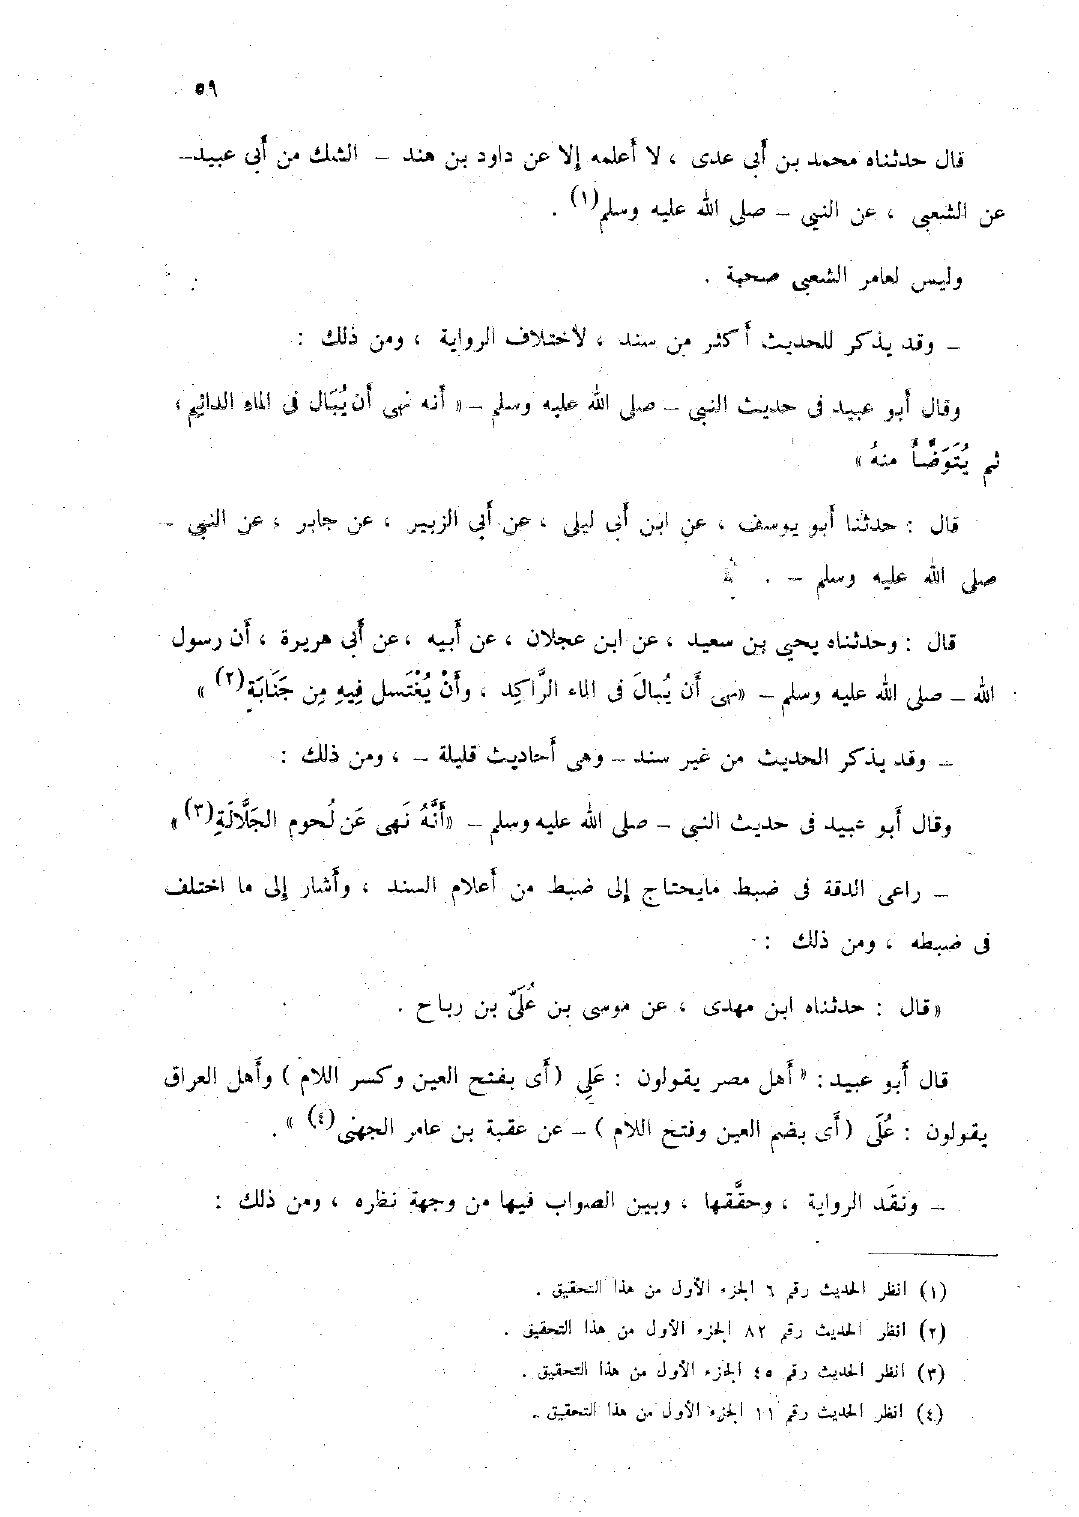 ٥٩
قال حدثناه محمد بن أبى عدى ، لا أعلمه إلا عن داود بن هند – الشك من أبي عبيد–
عن الشعبى ، عن النبي – صلى الله عليه وسلم(١) .
وليس لعامر الشعبى صحبة .
– وقد يذكر للحديث أكثر من سند ، لاختلاف الرواية ، ومن ذلك :
وقال أبو عبيد فى حديث النبي – صلى الله عليه وسلم – « أنه نهى أن يُبَال فى الماءِ الدائِم ،
ثم يُتَوَضَّأُ منهُ »
قال : حدثنا أبو يوسف ، عن ابن أبى ليلى ، عن أبي الزبير ، عن جابر ، عن النبي –
صلى الله عليه وسلم – .
قال : وحدثناه يحيي بن سعيد ، عن ابن عجلان ، عن أبيه ، عن أبى هريرة ، أن رسول
الله – صلى الله عليه وسلم – «نهى أن يُبالَ فى الماء الرَّاكِد ، وأَنْ يُغْتَسل فِيهِ مِن جَنَابَةٍ(٢) »
– وقد يذكر الحديث من غير سند – وهى أحاديث قليلة – ، ومن ذلك :
وقال أبو عبيد فى حديث النبى – صلى الله عليه وسلم – «أَنَّهُ نَهى عَن لُحوم الجَلَّالَةِ(٣) »
– راعى الدقة فى ضبط مايحتاج إلى ضبط من أعلام السند ، وأشار إلى ما اختلف
فى ضبطه ، ومن ذلك :
«قال : حدثناه ابن مهدى ، عن موسى بن عُلَىّ بن رباح .
قال أبو عبيد : «أهل مصر يقولون : عَلِى (أى بفتح العين وكسر اللام ) وأهل العراق
يقولون : عُلَى (أى بضم العين وفتح اللام ) – عن عقبة بن عامر الجهنى(٤) » .
– ونقَد الرواية ، وحقَّقها ، وبين الصواب فيها من وجهة نظره ، ومن ذلك :
(١) انظر الحديث رقم ٦ الجزء الأول من هذا التحقيق .
(٢) انظر الحديث رقم ٨٢ الجزء الأول من هذا التحقيق .
(٣) انظر الحديث رقم ٤٥ الجزء الأول من هذا التحقيق .
(٤) انظر الحديث رقم ١١ الجزء الأول من هذا التحقيق .